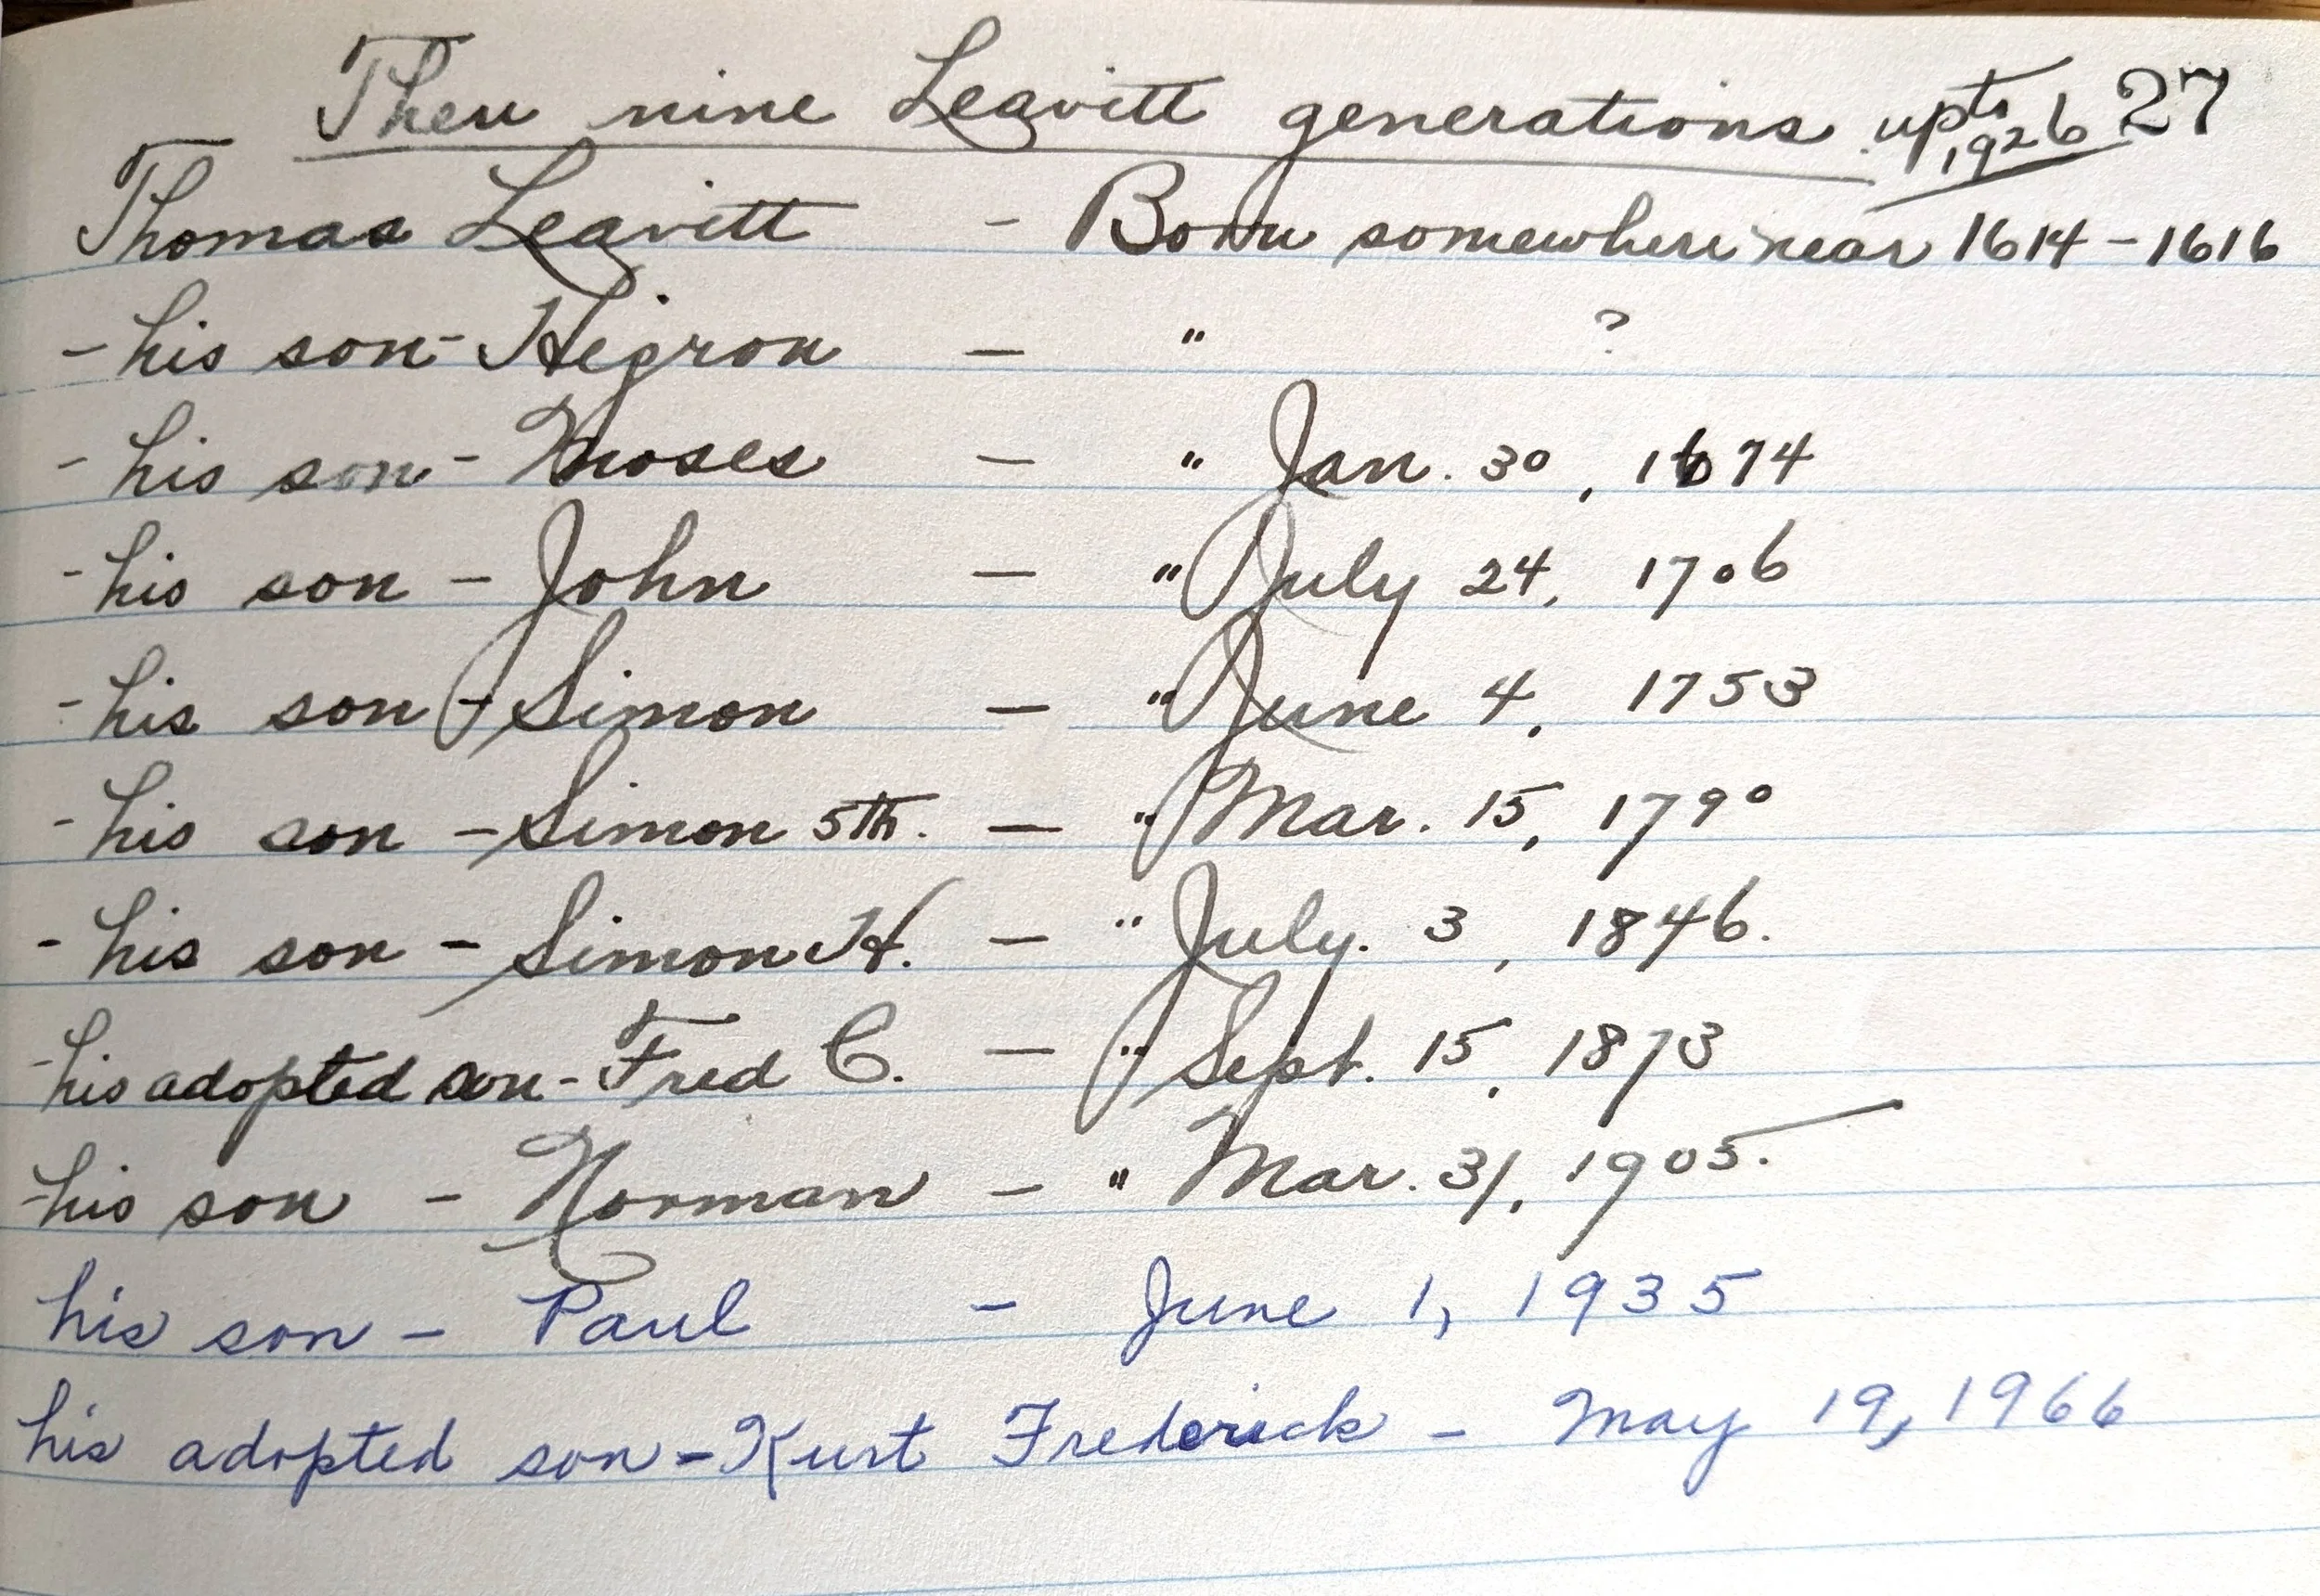 Then nine Leavitt generations upto 1926 27
Thomas Leavitt - Born somewhere near 1614 - 1616
- his son - Hegron - " ?
- his son - Moses - " Jan. 30, 1674
- his son - John - " July 24, 1706
- his son - Simon - " June 4, 1753
- his son - Simon 5th. - " Mar. 15, 1790
- his son - Simon H. - " July. 3, 1846.
- his adopted son - Fred C. - " Sept. 15, 1873
- his son - Norman - " Mar. 31, 1905.
his son - Paul - June 1, 1935
his adopted son - Kurt Frederick - May 19, 1966